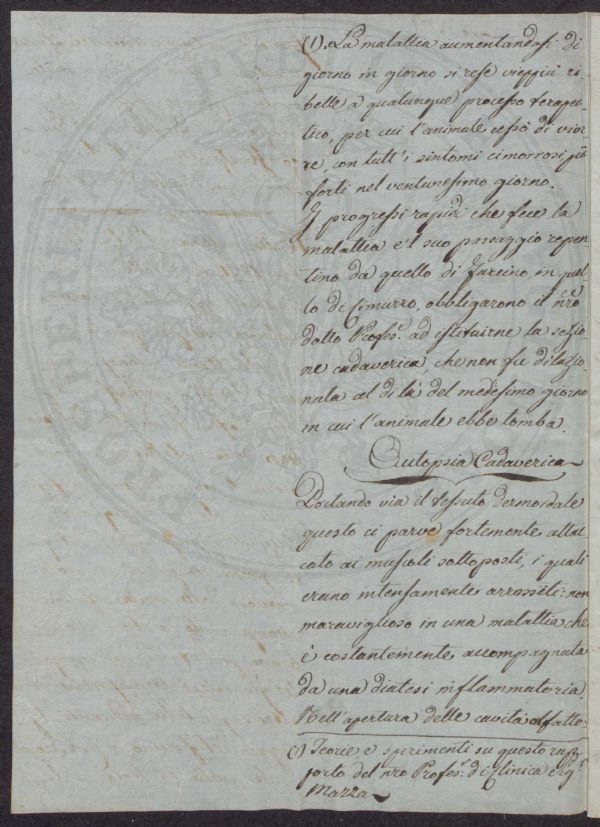 (1). La malattia aumentandosi di
giorno in giorno si rese vieppiù ri
belle a qualunque processo terapeu
tico, per cui l'animale cessò di vive
re, con tutt'i sintomi cimorrosi più
forti nel ventunesimo giorno.
I progressi rapidi che fece la
malattia e'l suo passaggio repen
tino da quello di Farcino in quel
lo di Cimurro, obbligarono il nro
dotto Profes.r ad istituirne la sezio
ne cadaverica, che non fu dilazio
nata al di là del medesimo giorno
in cui l'animale ebbe tomba.
Autopsia Cadaverica
via il tessuto dermoidale
questo ci parve fortemente attac
cato ai muscoli sottoposti, i quali
erano intensamente arrossiti: non
maraviglioso in una malattia che
è costantemente accompagnata
da una diatesi inflammatoria.
Nell'apertura delle cavità olfatto
(1) Teorie e sperimenti su questo rap
porto del nro Profes.r di Clinica
Mazza